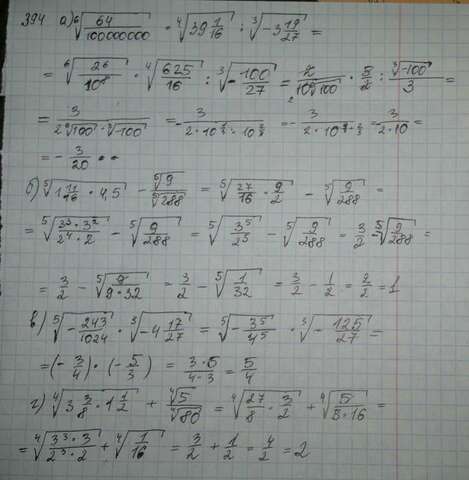 394 а) ⁶√(64/100000000) · ⁴√(39 1/16) : ³√(-3 19/27) =
= ⁶√(2⁶/10⁸) · ⁴√(625/16) : ³√(-100/27) = 2/(10 ⁶√100) · 5/2 : ³√(-100)/3 =
= 3/(2 ⁶√100 · ³√-100) = -3/(2·10 · 10) = -3/(2·10) = 3/(2·10) =
= -3/20
б) ⁵√(1 11/16 · 4,5) - ⁵√9/⁵√288 = ⁵√(27/16 · 9/2) - ⁵√(9/288) =
= ⁵√(3³·3²/2⁴·2) - ⁵√(9/288) = ⁵√(3⁵/2⁵) - ⁵√(9/288) = 3/2 - ⁵√(9/288) =
= 3/2 - ⁵√(9/9·32) = 3/2 - ⁵√(1/32) = 3/2 - 1/2 = 2/2 = 1
в) ⁵√(-243/1024) · ³√(-4 17/27) = ⁵√(-3⁵/4⁵) · ³√(-125/27) =
= (-3/4) · (-5/3) = 3·5/4·3 = 5/4
г) ⁴√(3 3/8 · 1 1/2) + ⁴√5/⁴√80 = ⁴√(27/8 · 3/2) + ⁴√(5/5·16) =
= ⁴√(3³·3/2³·2) + ⁴√(1/16) = 3/2 + 1/2 = 4/2 = 2